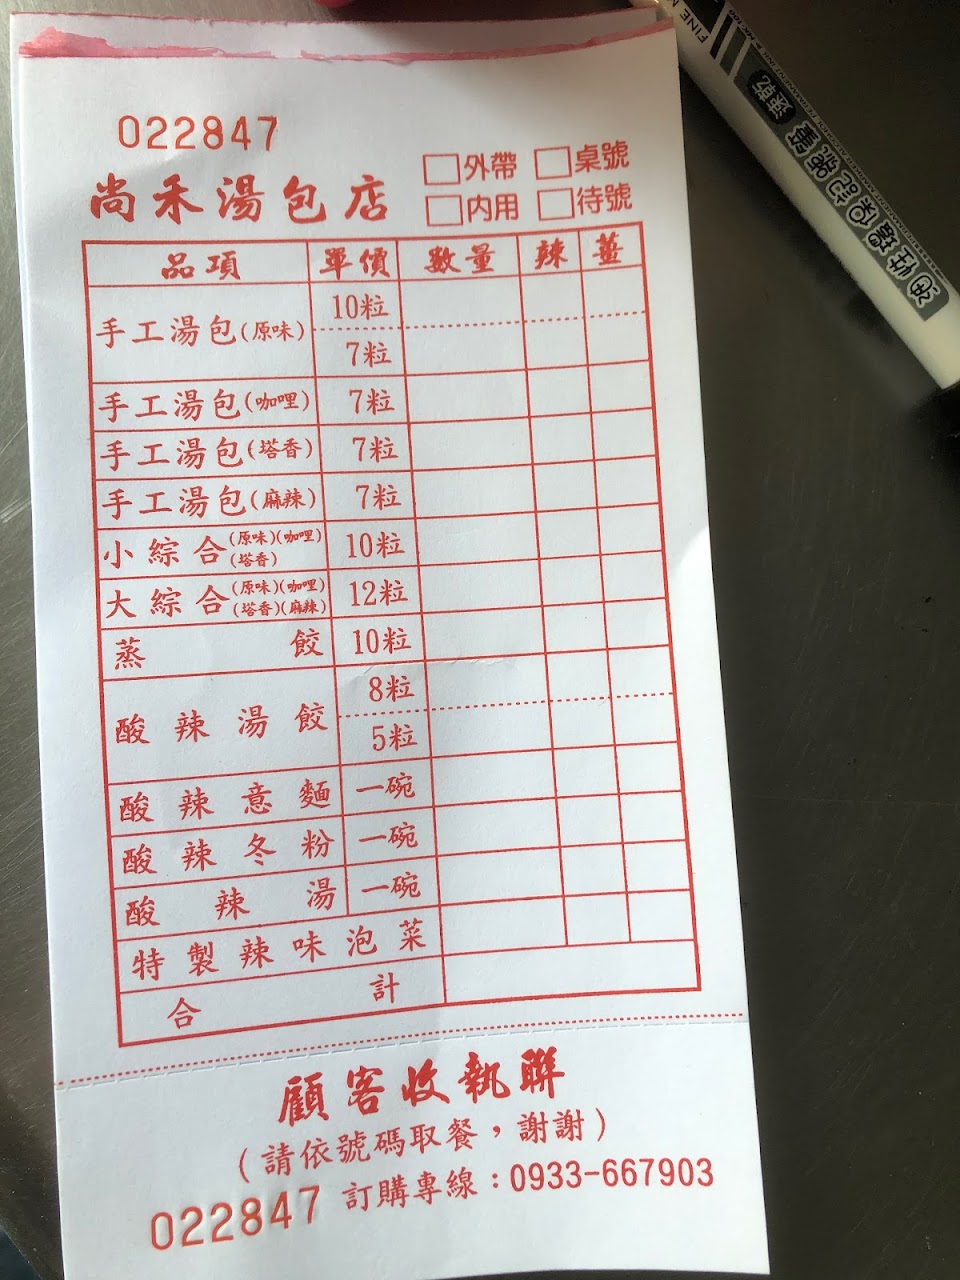 022847
尚禾湯包店
□外帶 □桌號
□內用 □待號
品項 單價 數量 辣 薑
手工湯包(原味) 10粒
7粒
手工湯包(咖哩) 7粒
手工湯包(塔香) 7粒
手工湯包(麻辣) 7粒
小綜合(原味)(咖哩)(塔香) 10粒
大綜合(原味)(咖哩)(塔香)(麻辣) 12粒
蒸餃 10粒
酸辣湯餃 8粒
5粒
酸辣意麵 一碗
酸辣冬粉 一碗
酸辣湯 一碗
特製辣味泡菜
合計
顧客收執聯
(請依號碼取餐，謝謝)
022847 訂購專線：0933-667903
速乾
油性單頭奇異筆